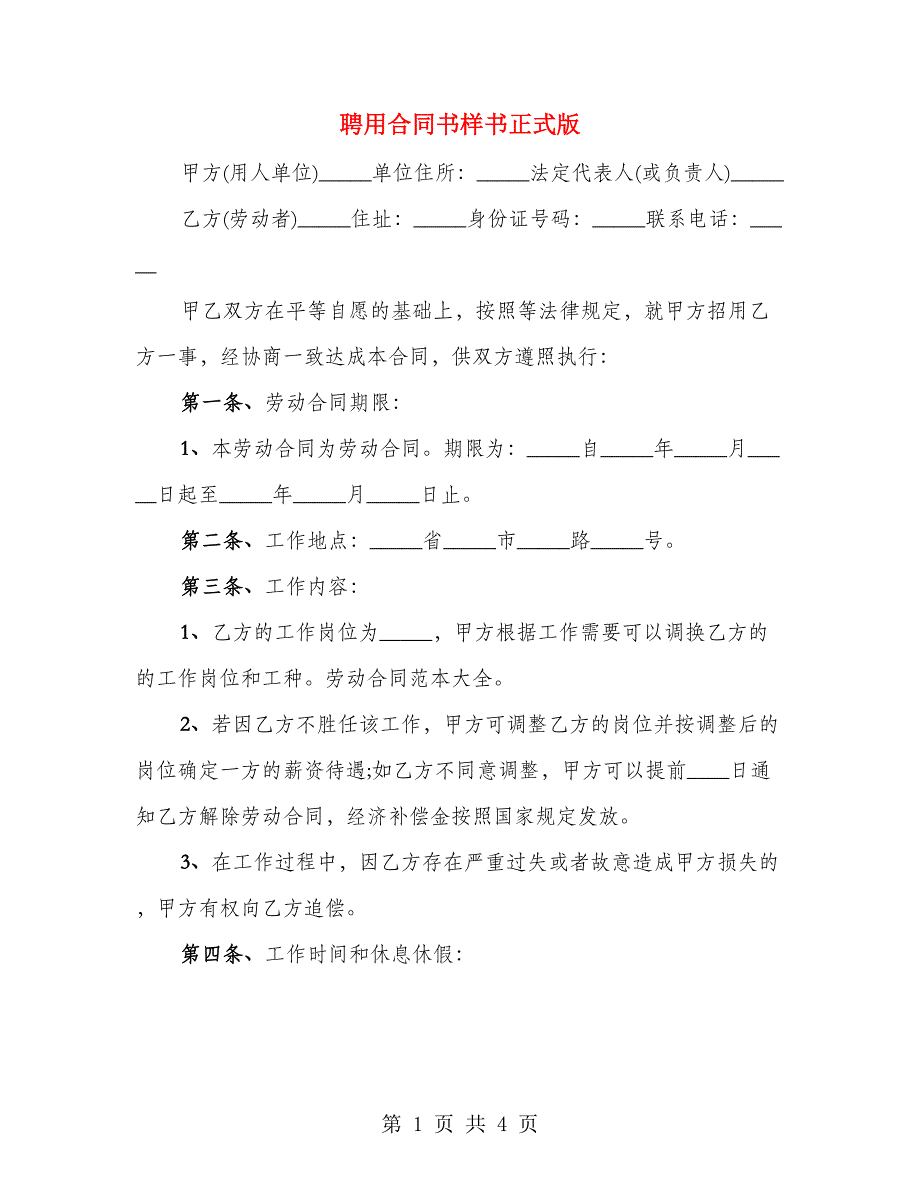 聘用合同书样书正式版
甲方(用人单位)_____单位住所：_____法定代表人(或负责人)_____
乙方(劳动者)_____住址：_____身份证号码：_____联系电话：___
__
甲乙双方在平等自愿的基础上，按照等法律规定，就甲方招用乙
方一事，经协商一致达成本合同，供双方遵照执行：
第一条、劳动合同期限：
1、本劳动合同为劳动合同。期限为：_____自_____年_____月___
__日起至_____年_____月_____日止。
第二条、工作地点：_____省_____市_____路_____号。
第三条、工作内容：
1、乙方的工作岗位为_____，甲方根据工作需要可以调换乙方的
的工作岗位和工种。劳动合同范本大全。
2、若因乙方不胜任该工作，甲方可调整乙方的岗位并按调整后的
岗位确定一方的薪资待遇;如乙方不同意调整，甲方可以提前____日通
知乙方解除劳动合同，经济补偿金按照国家规定发放。
3、在工作过程中，因乙方存在严重过失或者故意造成甲方损失的
，甲方有权向乙方追偿。
第四条、工作时间和休息休假：
第 1 页 共 4 页